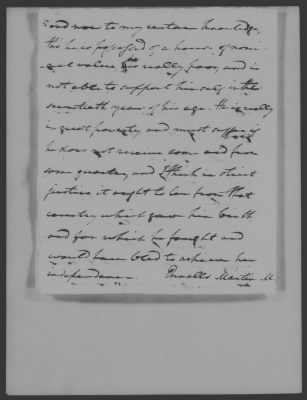 and now to my certain knowledge,
tho he is possessed of a house of nomi-
-nal value, he is really poor, and is
not able to support himself, in the
seventieth year of his age. He is really
in great poverty and must suffer if
he does not receive soon and from
some quarter, and I think in strict
justice it ought to be from that
country which gave him birth
and for which he fought and
would have bled to achieve her
independence. Ennalls Martin M